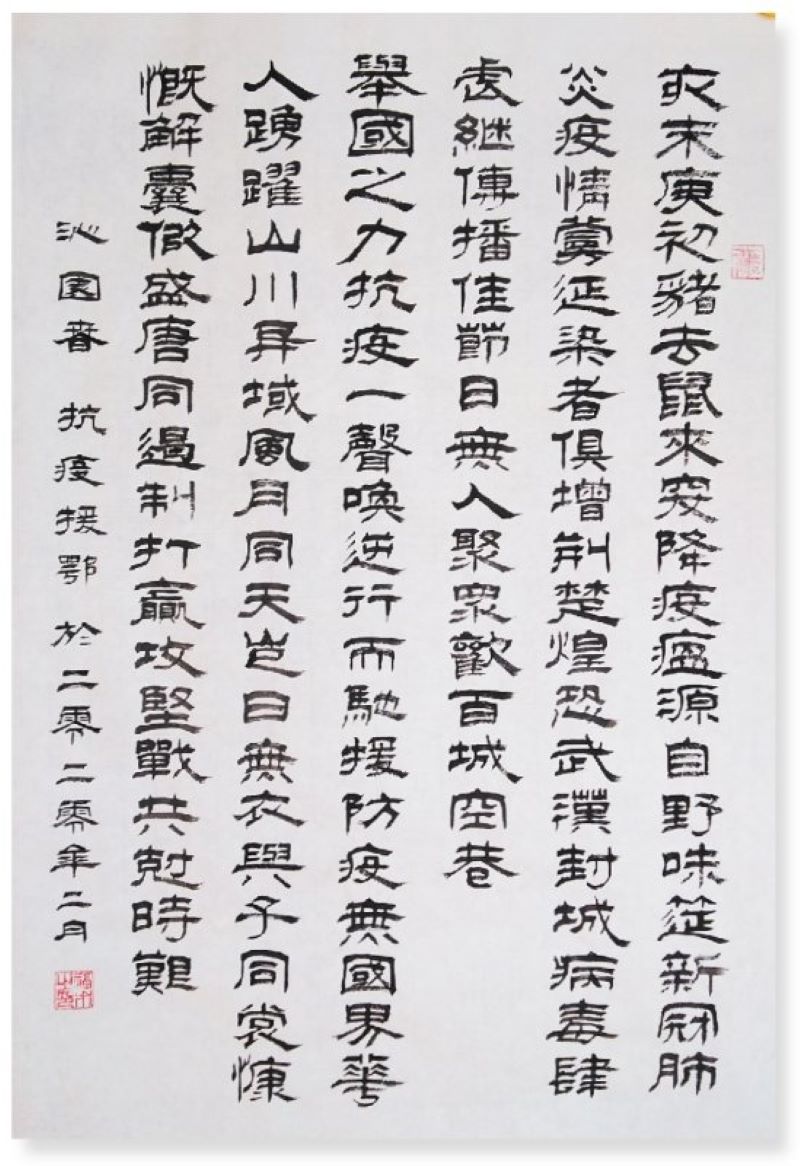 亥末庚初豬去鼠來突降疫瘟源自野味筵新冠肺
炎疫情蔓延染者俱增荊楚惶恐武漢封城病毒肆
虐繼傳播佳節日無人聚眾歡百城空巷
舉國之力抗疫一聲喚逆行而馳援防疫無國界華
人踴躍山川異域風月同天豈曰無衣與子同裳慷
慨解囊倣盛唐同遏制打贏攻堅戰共剋時艱
沁園春 抗疫援鄂 於二零二零年二月